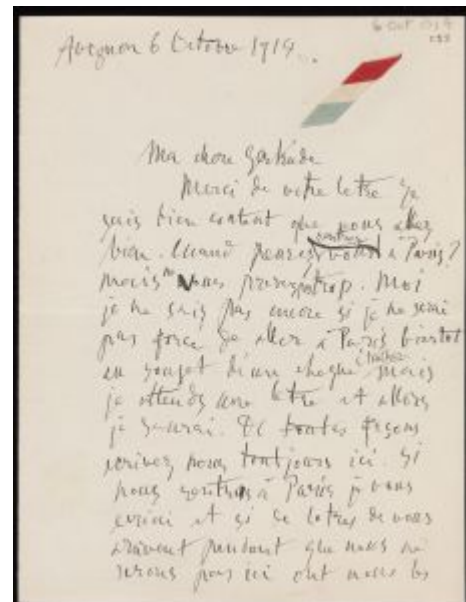 6 Oct 1914
Avignon 6 Octobre 1914
Ma chere Gertrude
Merci de votre letre je
suis bien content que vous allez
bien. Quand pensez vous rentrer à Paris?
mais ne vous pressez trop. Moi
je ne sais pas encore si je ne serai
pas force de aller a Paris bientot
au sujet d'un cheque mais
je attends une letre et allors
je saurai. De toutes façons
ecrivez nous toutjours ici. Si
nous rentrons à Paris je vous
ecrirai et si de letres de vous
arivent pendant que nous ne
serons pas ici ont nous les